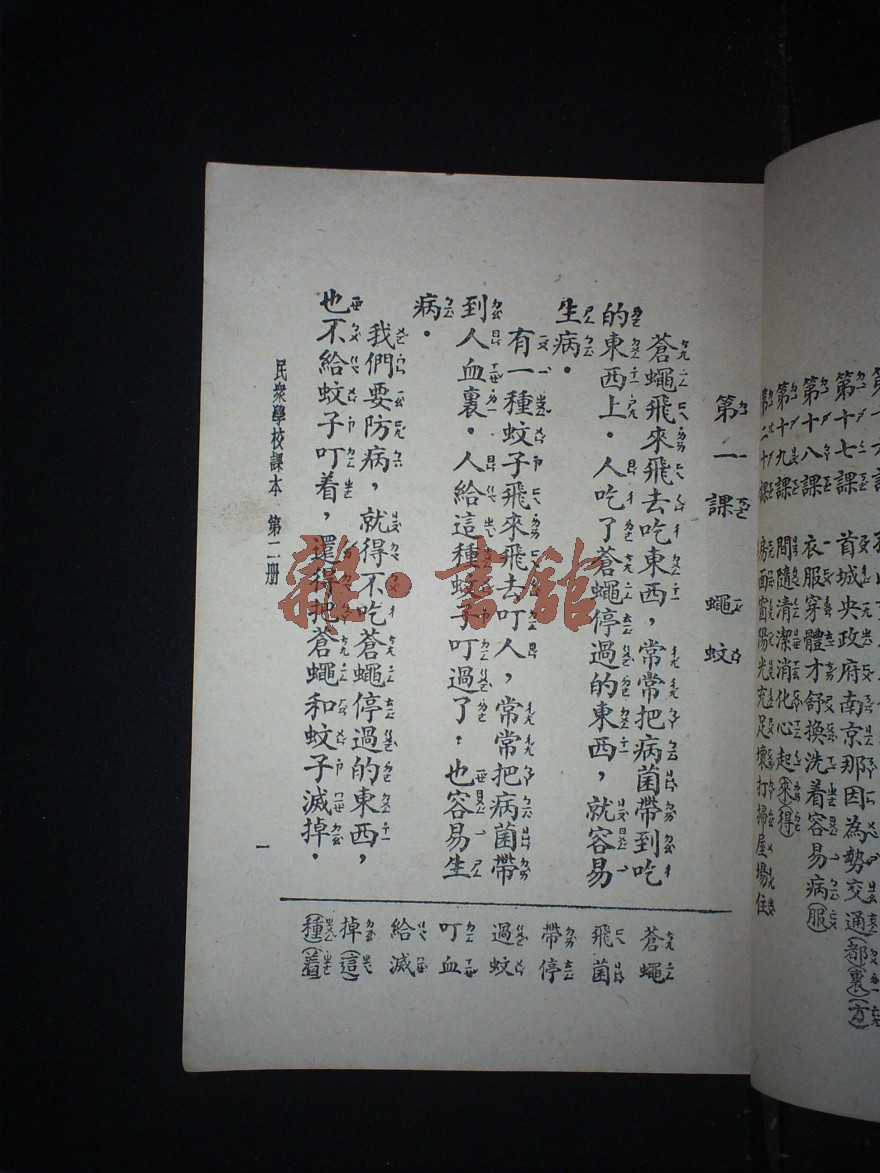 第十七課　首城央政府南京那因為勢交通(都)(裏)(方)
第十八課　衣服穿體才舒換洗着容易病(服)
第十九課　間隨清潔消化心起(來)(得)
第二十課　房西窗陽光充足壞打掃屋場住
第一課　蠅蚊
蒼蠅飛來飛去吃東西，常常把病菌帶到吃
的東西上。人吃了蒼蠅停過的東西，就容易
生病。
有一種蚊子飛來飛去叮人，常常把病菌帶
到人血裏。人給這種蚊子叮過了，也容易生
病。
我們要防病，就得不吃蒼蠅停過的東西，
也不給蚊子叮着，還得把蒼蠅和蚊子滅掉。
蒼蠅
飛菌
帶停
過蚊
叮血
給滅
掉(這)
(種)(着)
民衆學校課本　第二册
一
雜·書館